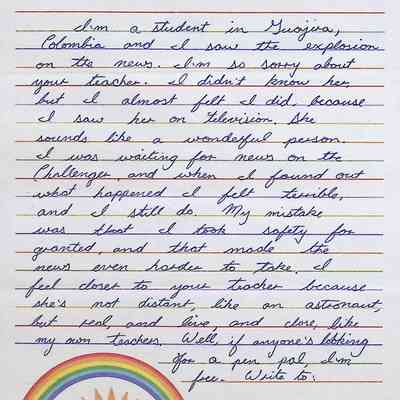 I'm a student in Guajira,
Colombia and I saw the explosion
on the news. I'm so sorry about
your teacher. I didn't know her,
but I almost felt I did, because
I saw her on television. She
sounds like a wonderful person.
I was waiting for news on the
Challenger, and when I found out
what happened I felt terrible,
and I still do. My mistake
was that I took safety for
granted, and that made the
news even harder to take. I
feel closer to your teacher because
she's not distant, like an astronaut,
but real, and live, and close, like
my own teachers. Well, if anyone's looking
for a pen pal, I'm
free. Write to: